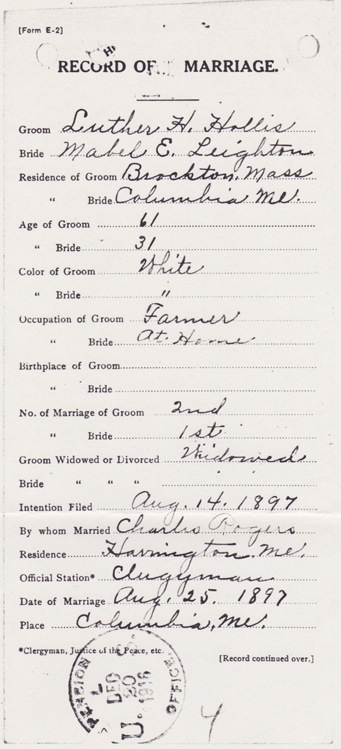 [Form E-2]
RECORD OF MARRIAGE.
Groom Luther H. Hollis
Bride Mabel E. Leighton
Residence of Groom Brockton, Mass
" Bride Columbia Me.
Age of Groom 61
" Bride 31
Color of Groom White
" Bride "
Occupation of Groom Farmer
" Bride At Home
Birthplace of Groom
" Bride
No. of Marriage of Groom 2nd
" Bride 1st
Groom Widowed or Divorced Widowed
Bride " " "
Intention Filed Aug. 14. 1897
By whom Married Charles Rogers
Residence Harrington, Me.
Official Station* Clergyman
Date of Marriage Aug. 25. 1897
Place Columbia, Me.
*Clergyman, Justice of the Peace, etc.
[Record continued over.]
U. PENSION OFFICE.
DEC
30
1916
4